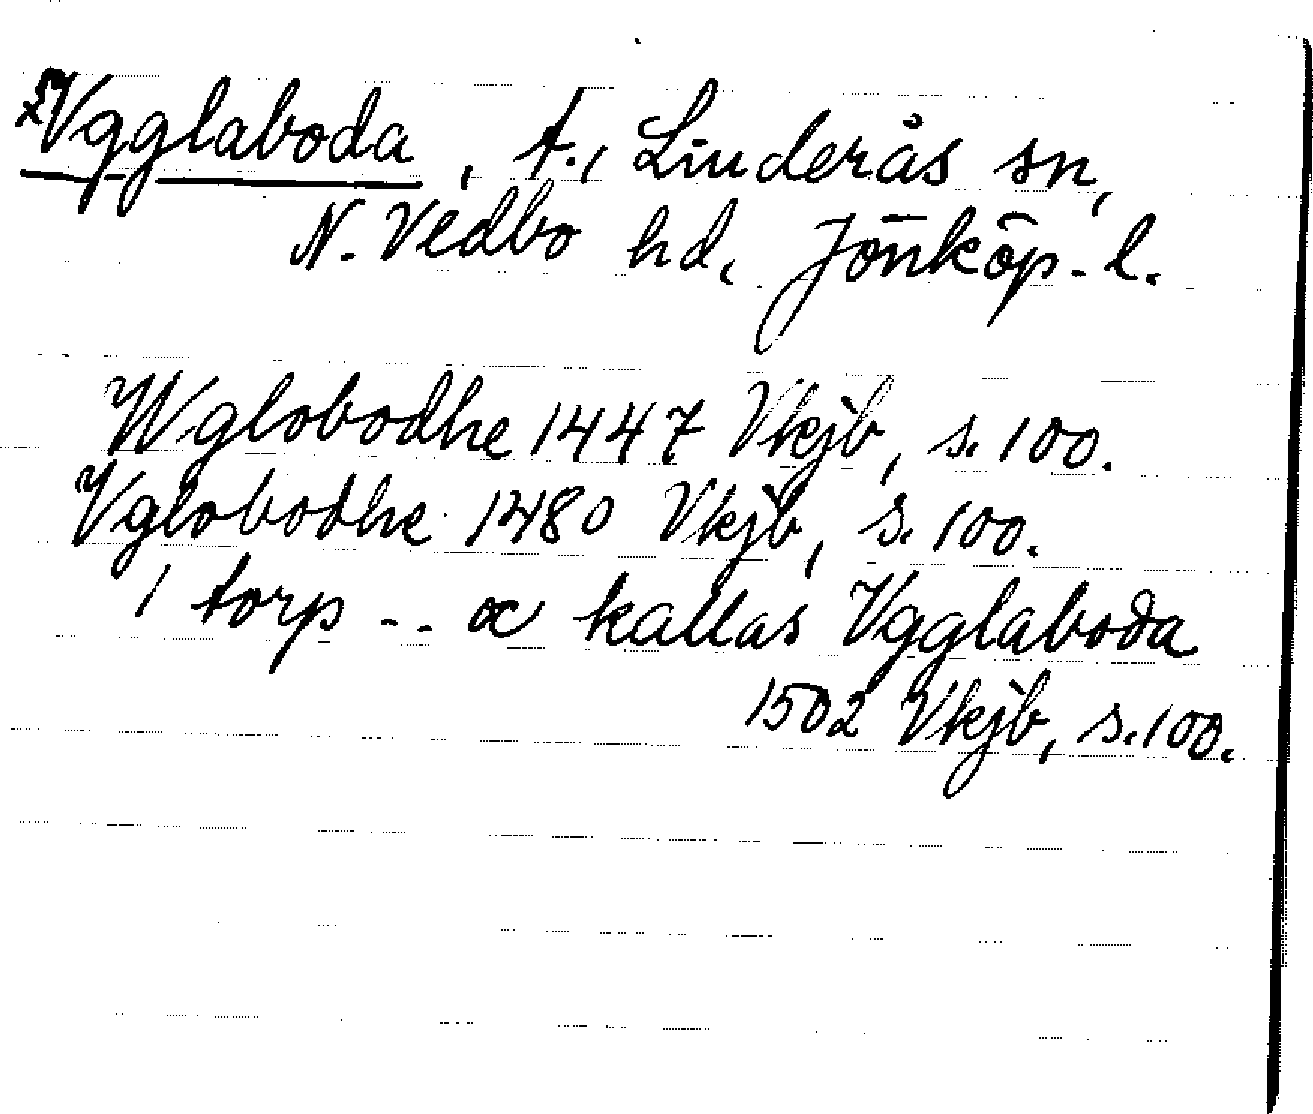 Vgglaboda, t., Linderås sn,
N. Vedbo hd, Jönköp. l.
Wglobodhe 1447 Vkjb, s. 100.
Vglobodhe 1480 Vkjb, s. 100.
1 torp - - oc kallas Vgglaboda
1502 Vkjb, s. 100.